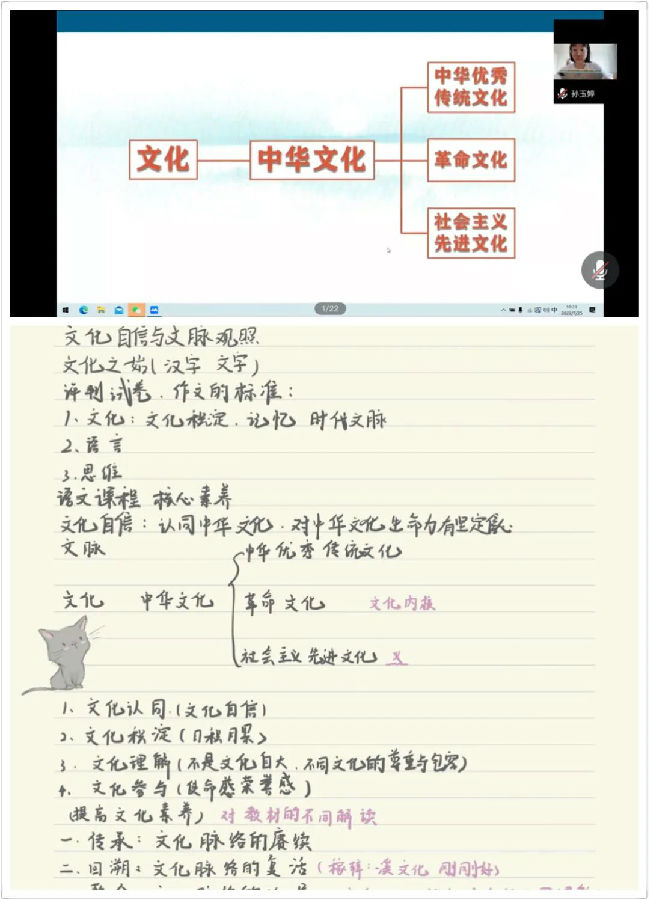 中华优秀
传统文化
文化
中华文化
革命文化
社会主义
先进文化
孙玉婷
1/22
文化自信与文脉观照
文化之始(汉字 文字)
评判试卷.作文的标准:
1、文化:文化积淀.记忆 时代文脉
2.语言
3.思维
语文课程 核心素养
文化自信:认同中华文化.对中华文化生命力有坚定
文脉
中华优秀传统文化
文化 中华文化
革命文化 文化内核
社会主义先进文化
1、文化认同.(文化自信)
2、文化积淀(日积月累)
3.文化理解(不是文化自大.不同文化的尊重与包容)
4.文化参与(使命感荣誉感)
(提高文化素养) 对教材的不同解读
一.传承:文化脉络的赓续
二.回溯:文化脉络的复活(稼轩:溪文化 刚刚好)